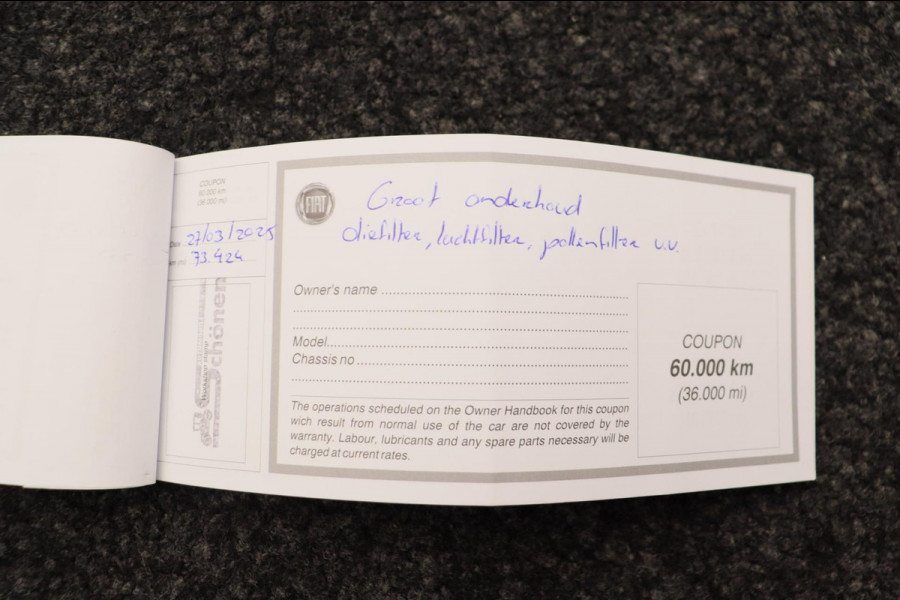 COUPON
60.000 km
(36.000 mi)
Date 27/03/2025
km (mi) 73.424
schönen
FIAT
Groot onderhoud
oliefilter, luchtfilter, pollenfilter v.v.
Owner's name
Model
Chassis no
The operations scheduled on the Owner Handbook for this coupon
wich result from normal use of the car are not covered by the
warranty. Labour, lubricants and any spare parts necessary will be
charged at current rates.
COUPON
60.000 km
(36.000 mi)